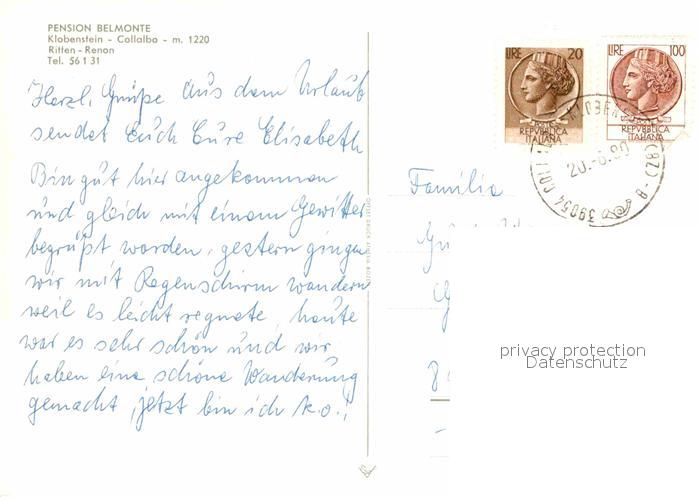 PENSION BELMONTE
Klobenstein - Collalbo - m. 1220
Ritten - Renon
Tel. 56 1 31
Herzl. Grüße aus dem Urlaub
sendet Euch Eure Elisabeth
Bin gut hier angekommen
und gleich mit einem Gewitter
begrüßt worden, gestern gingen
wir mit Regenschirm wandern
weil es leicht regnete, heute
war es sehr schön und wir
haben eine schöne Wanderung
gemacht, jetzt bin ich k.o.!
LIRE 20
REPVBBLICA
ITALIANA
LIRE 100
REPVBBLICA
ITALIANA
39054 (BZ) - B
20.-6.80
Familie
privacy protection
Datenschutz